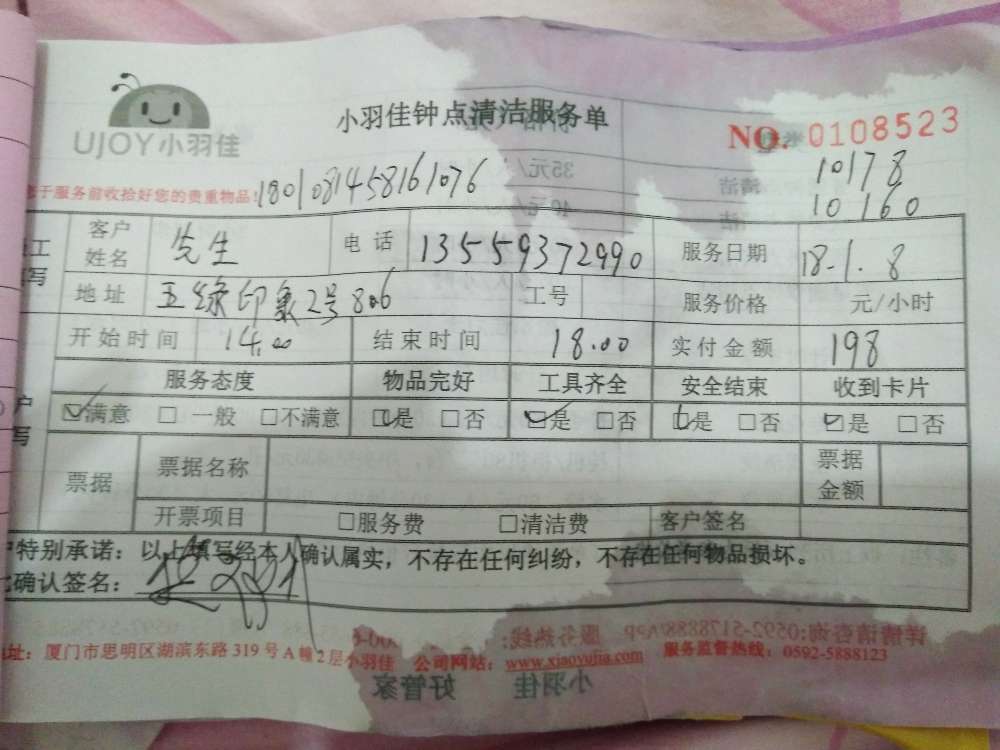 小羽佳钟点清洁服务单
UJOY小羽佳
NO. 0108523
10178
10160
于服务前收拾好您的贵重物品! 1801081458161076
客户姓名 先生 电话 13559372990 服务日期 18.1.8
地址 五缘印象2号806 工号 服务价格 元/小时
开始时间 14.00 结束时间 18.00 实付金额 198
服务态度 物品完好 工具齐全 安全结束 收到卡片
☑满意 □一般 □不满意 ☑是 □否 ☑是 □否 ☑是 □否 ☑是 □否
票据 票据名称 票据金额
开票项目 □服务费 □清洁费 客户签名
特别承诺：以上填写经本人确认属实，不存在任何纠纷，不存在任何物品损坏。
确认签名：
址：厦门市思明区湖滨东路319号A幢2层小羽佳 公司网站：www.xiaoyujia.com 服务监督热线：0592-5888123